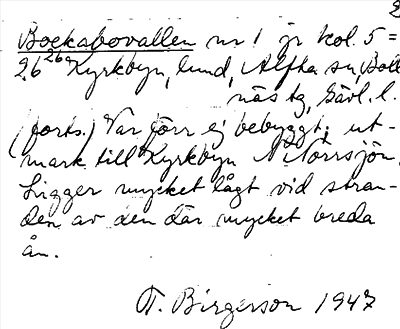 2
Bockabovallen nr 1 jr kol. 5 =
26 26a Kyrkbyn, lund, Alfta sn, Boll
näs tg, Gävl. l.
(forts.) Var förr ej bebyggt; ut-
mark till Kyrkbyn N Norrsjön.
Ligger mycket lågt vid stran-
den av den där mycket breda
ån.
T. Birgerson 1947